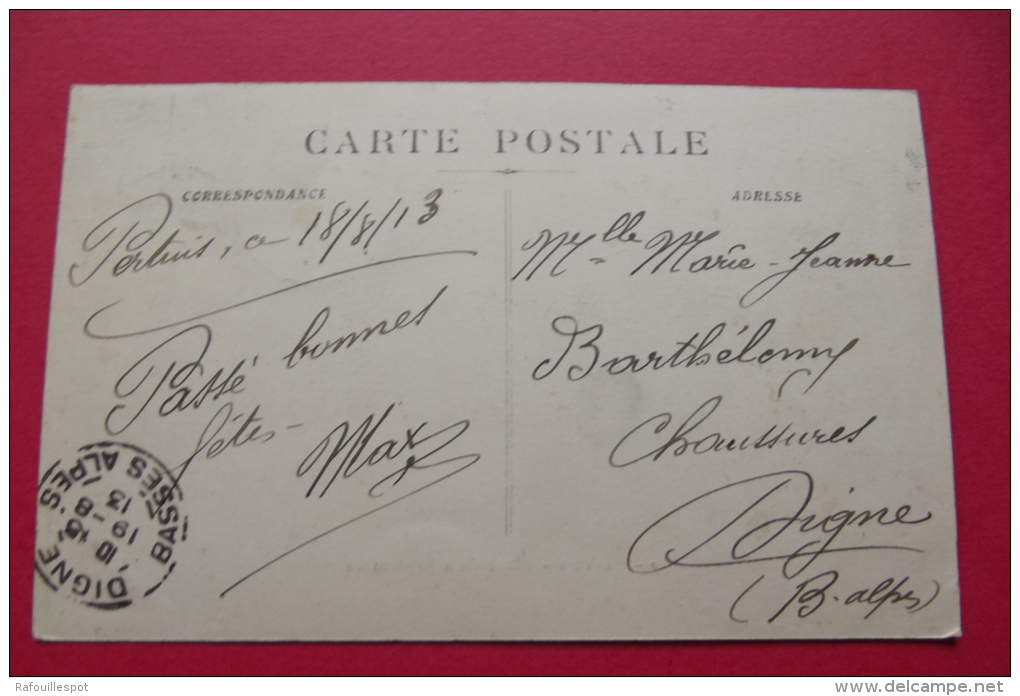 CARTE POSTALE
CORRESPONDANCE
Pertuis, ce 18/8/13
Passé bonnes
fêtes -
Max
ADRESSE
Mlle Marie-Jeanne
Barthélemy
Chaussures
Digne
(B-alpes)
DIGNE
BASSES ALPES
19-8
13
Rafouillespot
www.delcampe.net